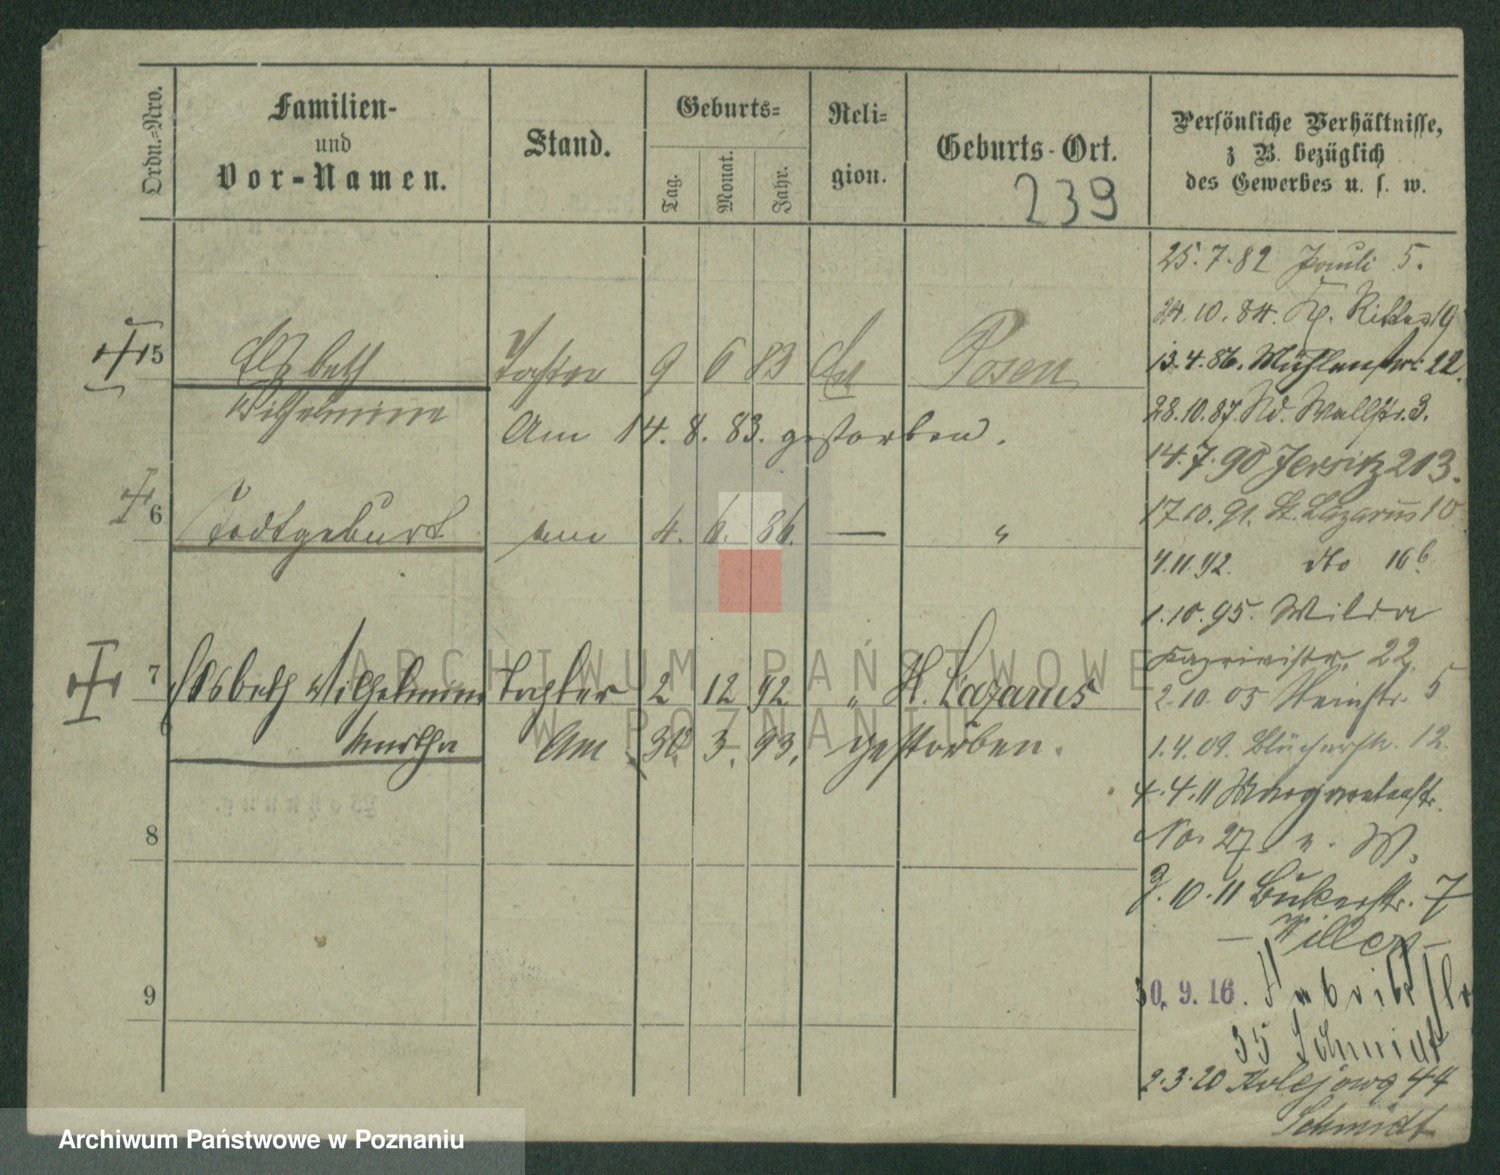 Ordn.-Nro.
Familien-
und
Vor-Namen.
Stand.
Geburts-
Tag.
Monat.
Jahr.
Reli-
gion.
Geburts-Ort.
239
Persönliche Verhältnisse,
z B. bezüglich
des Gewerbes u. s. w.
25.7.82 Pauli 5.
24.10.84. Kl. Ritterstr 9
5 Elsbeth Tochter 9 6 83 Ev Posen
13.4.86. Mühlenstr. 22.
Wilhelmine
Am 14.8.83. gestorben.
28.10.87. Nd. Wallstr. 3.
14.7.90 Jersitz 213.
6 Todtgeburt am 4. 6. 86. — "
17.10.91. St. Lazarus 10
4.11.92. dto 10 b.
1.10.95. Wilda
22.
7 Elsbeth Wilhelmine Tochter 2 12 92 " St. Lazarus
2.10.05 Steinstr. 5
Martha Am 30. 3. 93. gestorben.
1.4.09. Blücherstr. 12.
4.4.11 Margaretenstr.
No. 27
8
3.10.11 Bukerstr. 7
Willer
9
30.9.16. Fabrikstr
35 Schmidt
2.3.20 Kolejowa 44
Schmidt
ARCHIWUM PAŃSTWOWE
W POZNANIU
Archiwum Państwowe w Poznaniu